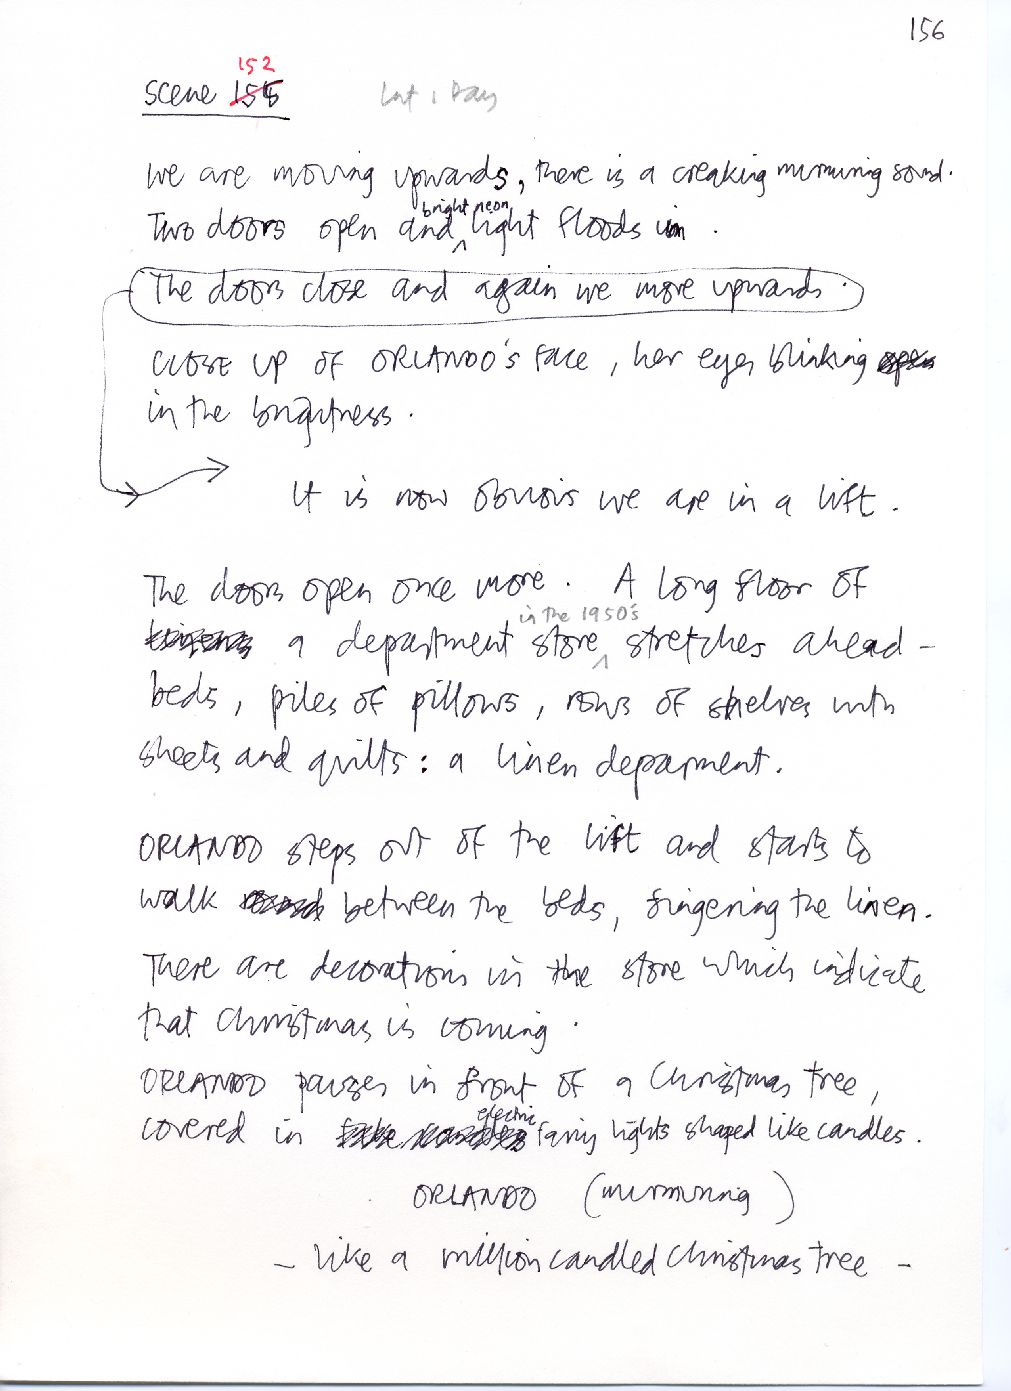 156
152
Scene 155
Int : Day
We are moving upwards, there is a creaking murmuring sound.
bright neon
Two doors open and light floods in .
The doors close and again we move upwards .
CLOSE UP OF ORLANDO's face, her eyes blinking
in the brightness .
It is now obvious we are in a lift .
The doors open once more . A long floor of
in the 1950's
a department store stretches ahead -
beds, piles of pillows, rows of shelves with
sheets and quilts : a linen department.
ORLANDO steps out of the lift and starts to
walk between the beds, fingering the linen.
There are decorations in the store which indicate
that Christmas is coming .
ORLANDO pauses in front of a Christmas tree,
electric
covered in fairy lights shaped like candles .
ORLANDO (murmuring)
- like a million candled Christmas tree -